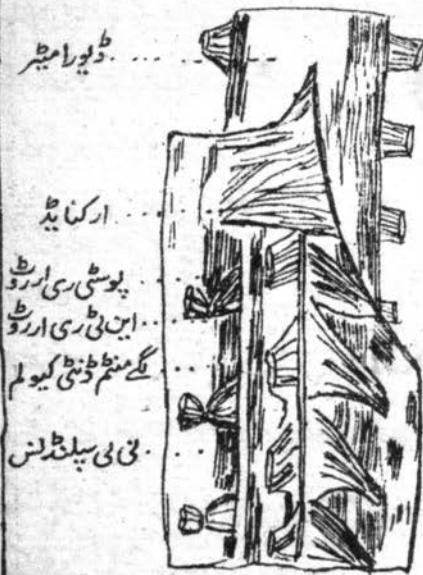 ڈیورامیٹر
ارکنایڈ
پوسٹی ری ار روٹ
این ٹی ری ار روٹ
لگے منٹم ڈنٹی کیولم